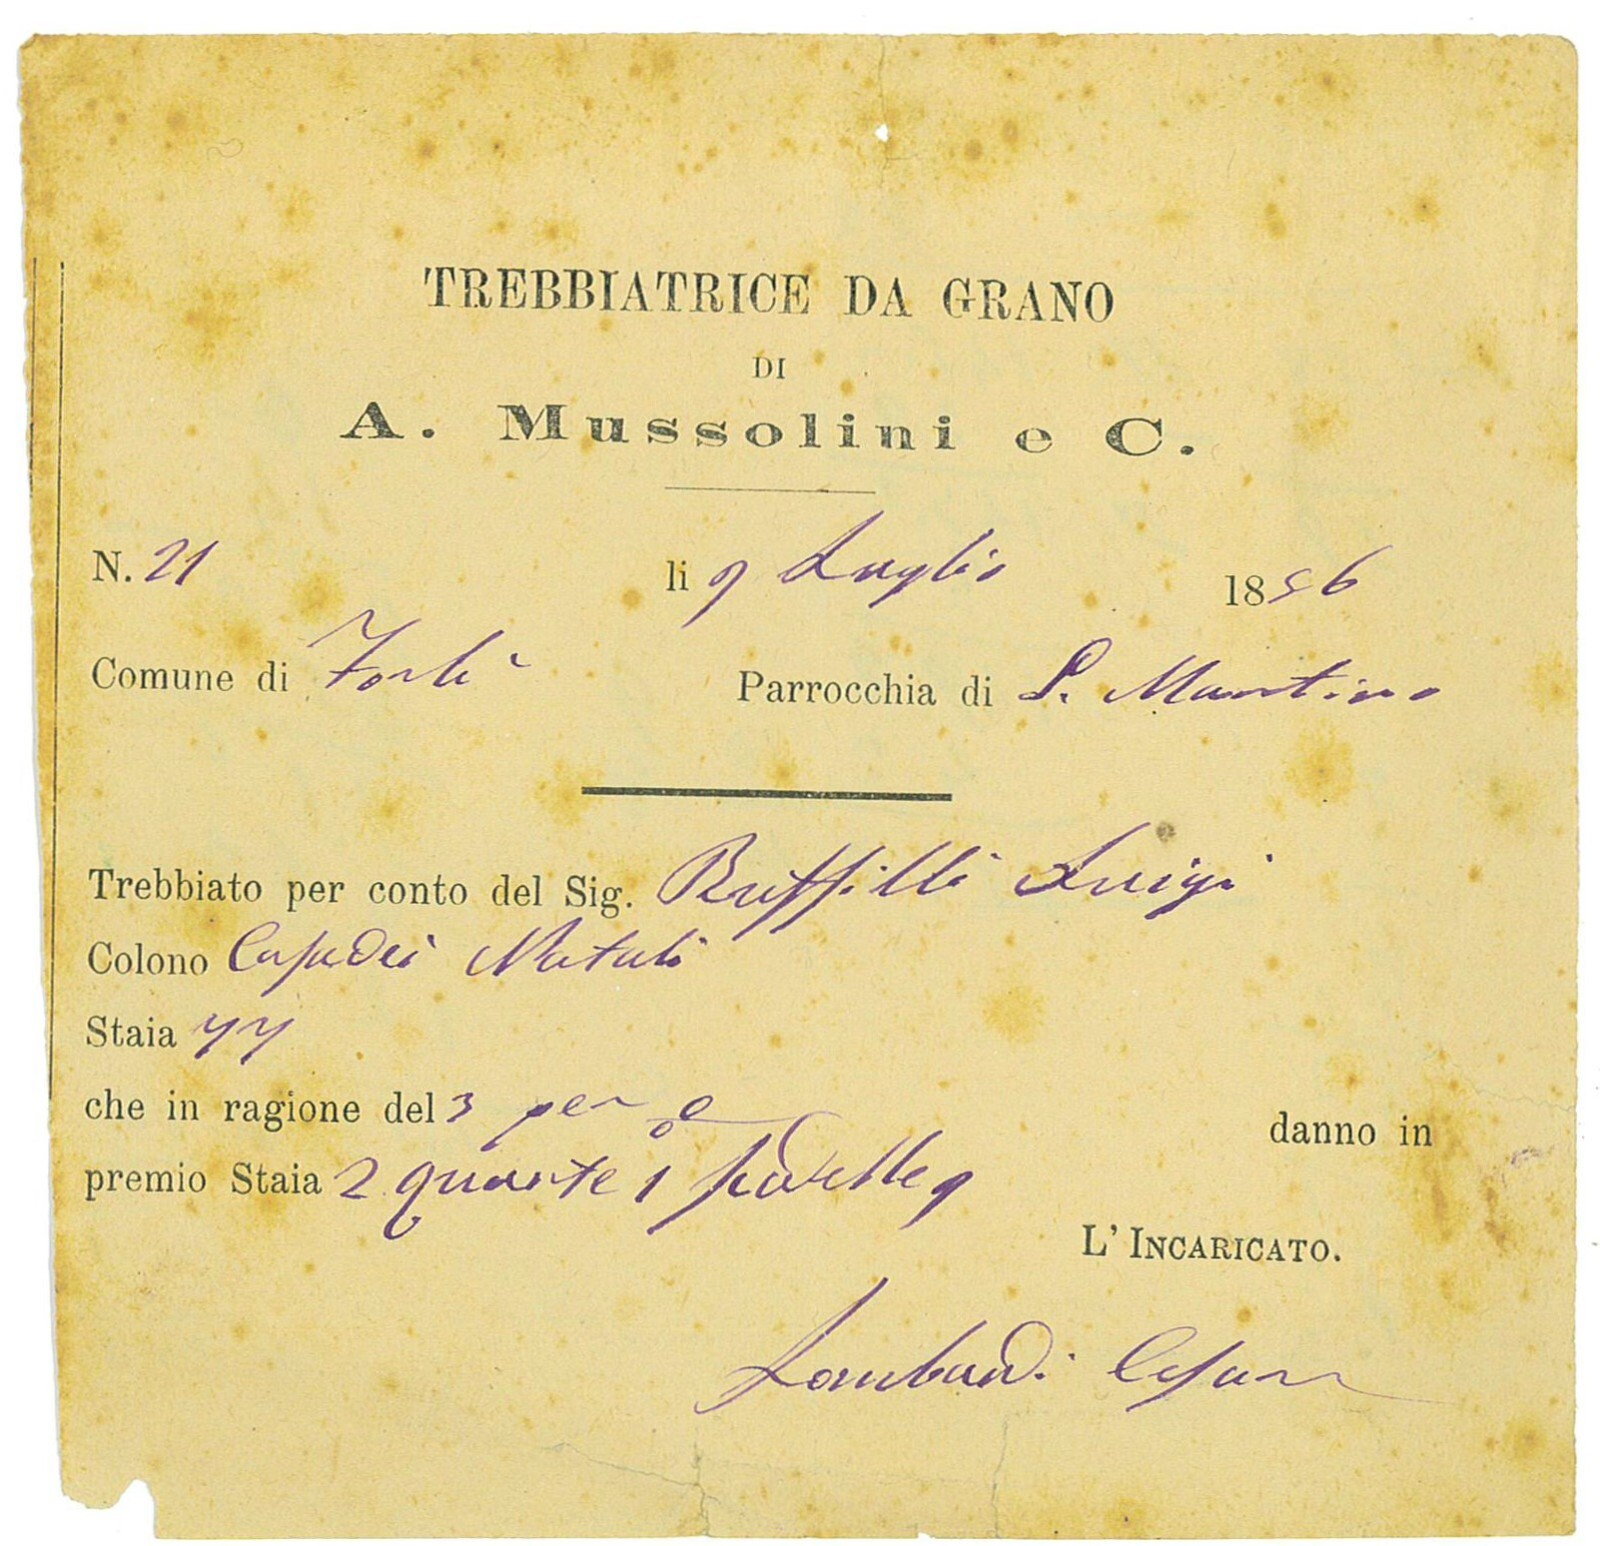 TREBBIATRICE DA GRANO
DI
A. Mussolini e C.
N. 21 li 9 Luglio 18
Comune di Forlì Parrocchia di S. Martino
Trebbiato per conto del Sig. Ruffilli Luigi
Colono Casadei Natale
Staia 77
che in ragione del 3 per % danno in
premio Staia 2 quarte 1
L' INCARICATO.
Lombardi Cesare